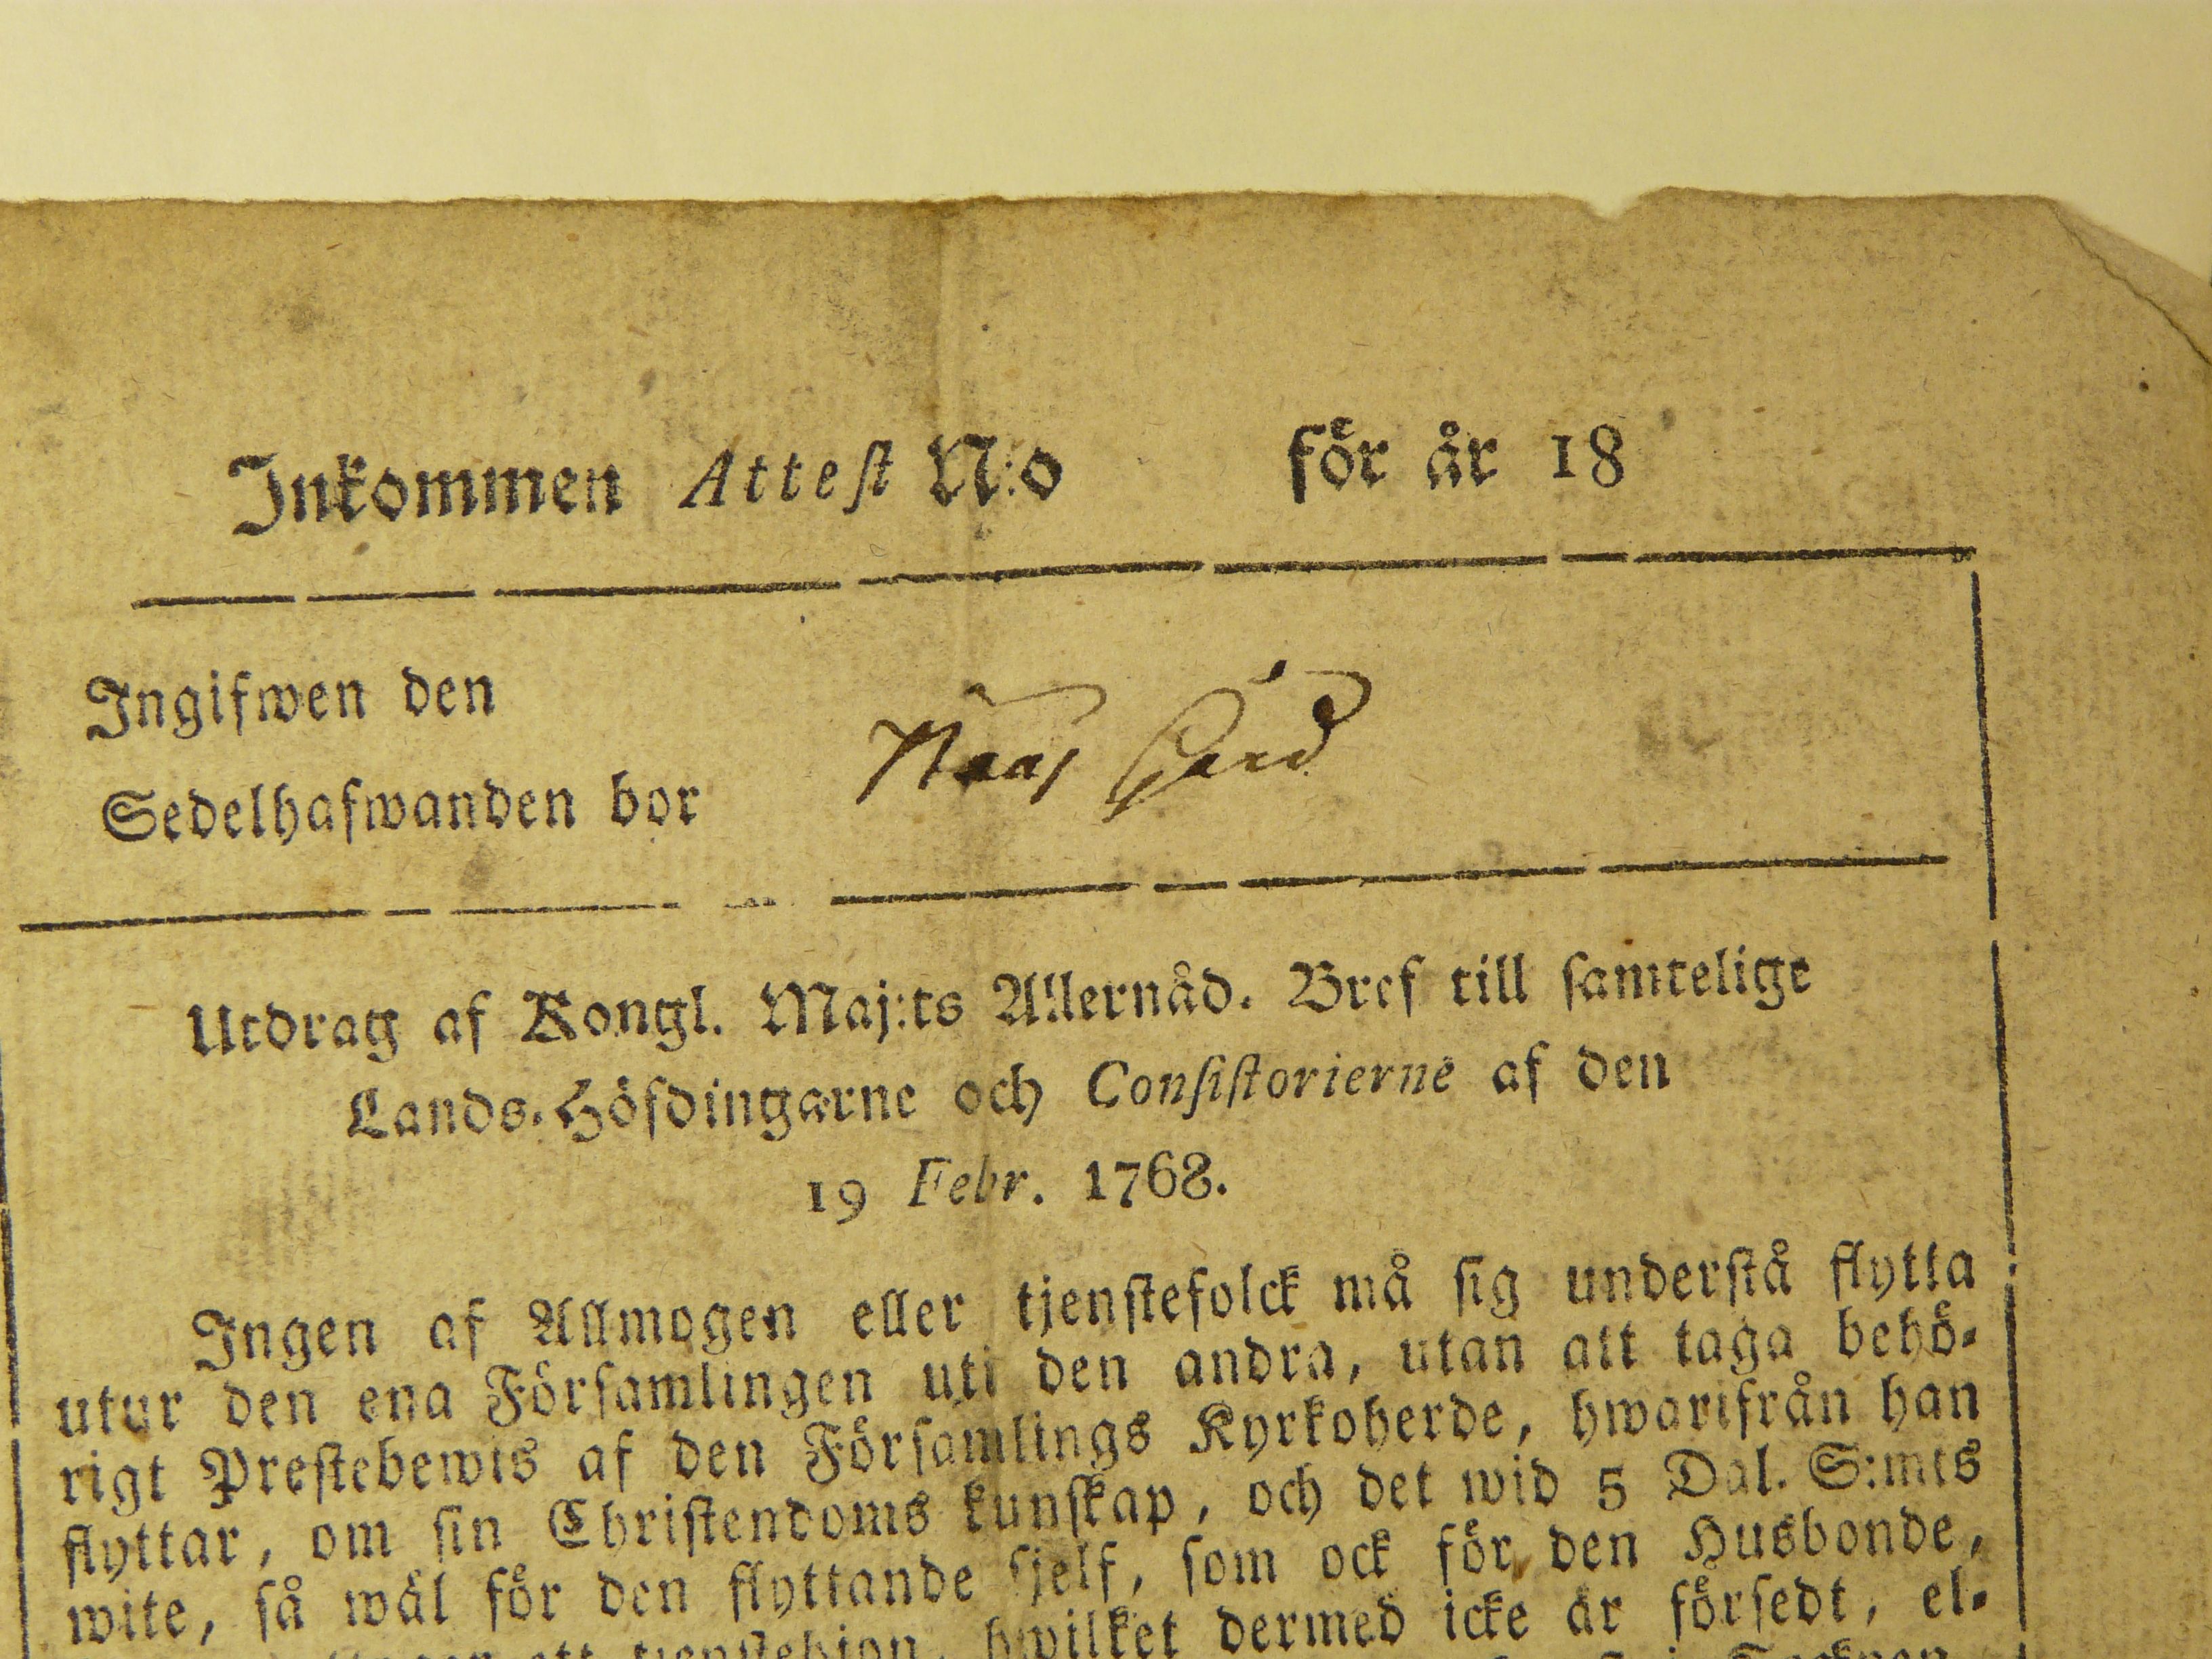 Inkommen Attest N:o för år 18
Ingifwen den
Sedelhafwanden bor
Utdrag af Kongl. Maj:ts Allernåd. Bref till samtelige
Lands-Höfdingarne och Consistorierne af den
19 Febr. 1768.
Ingen af Allmogen eller tjenstefolck må sig understå flytta
utur den ena Församlingen uti den andra, utan att taga behö-
rigt Prestebewis af den Församlings Kyrkoherde, hwarifrån han
flyttar, om sin Christendoms kunskap, och det wid 5 Dal. S:mts
wite, så wäl för den flyttande sjelf, som ock för den Husbonde,
hwilket dermed icke är försedt, el-